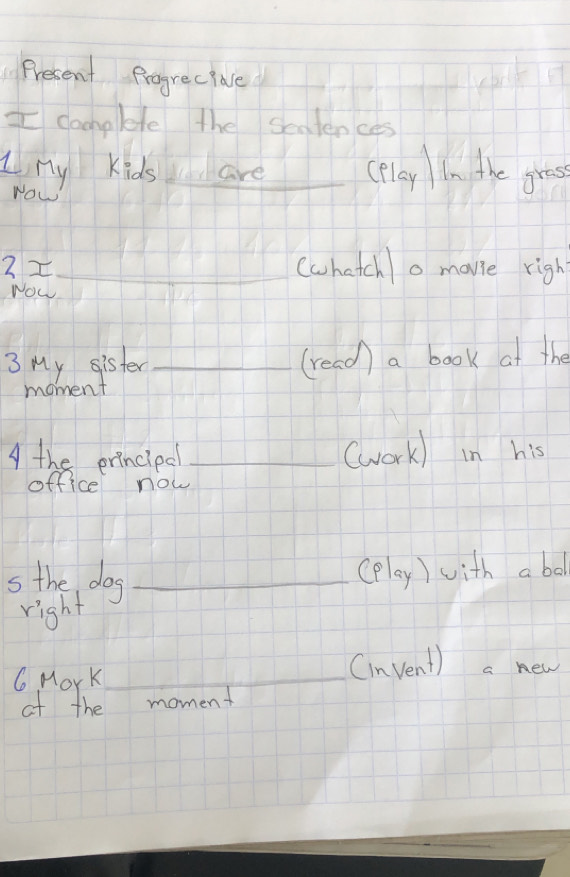 Present Progrecive
I complete the sentences
1 My kids are (Play) In the grass
Now
2 I (whatch) a movie righ
Now
3 My sister (read) a book at the
moment
4 the principal (work) in his
office now
5 the dog (Play) with a bal
right
6 Mark (invent) a new
at the moment